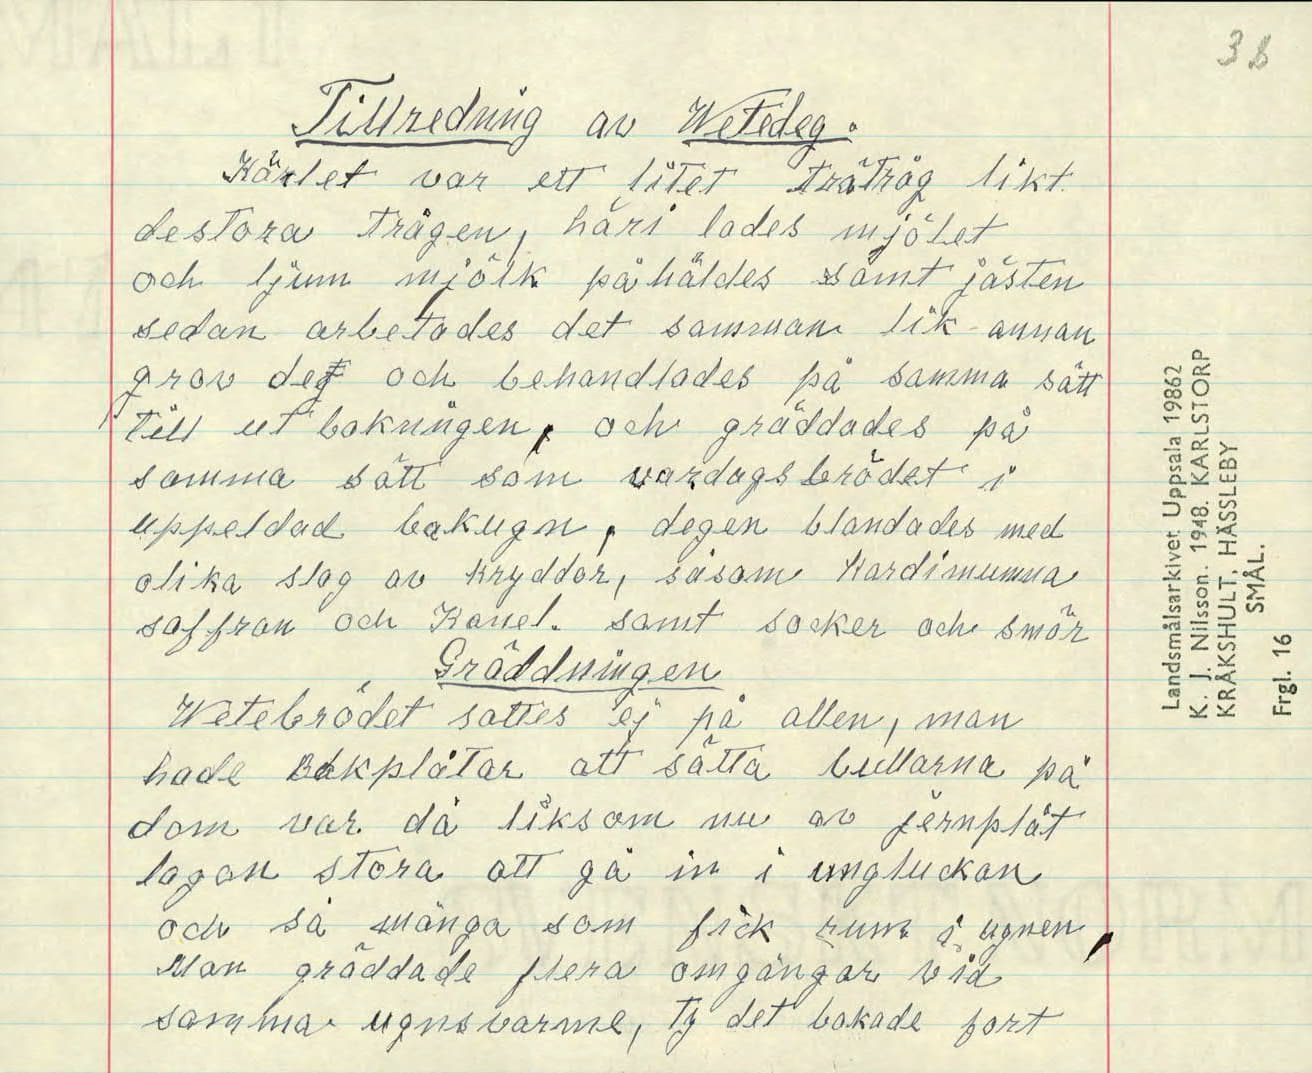 38
Tillredning av Wetedeg.
Kärlet var ett litet träträg likt
destora trågen, häri lades mjölet
och ljum mjölk påhäldes samt jästen
sedan arbetades det samman lik annan
grov deg och behandlades på samma sätt
till utbakningen, och gräddades på
samma sätt som vardagsbrödet i
uppeldad bakugn, degen blandades med
olika slag av kryddor, såsom Kardimumma
saffran och Kanel. samt socker och smör
Gräddningen
Wetebrödet sattes ej på allen, man
hade Bakplåtar att sätta bullarna på
dom var då liksom nu av jernplåt
lagan stora att gå in i ungluckan
och så många som fick rum i ugnen,
Man gräddade flera omgångar vid
samma ugnsvarme, ty det bakade fort
Landsmålsarkivet Uppsala 19862
K. J. Nilsson. 1948. KARLSTORP
KRÅKSHULT, HÄSSLEBY
SMÅL.
Frgl. 16